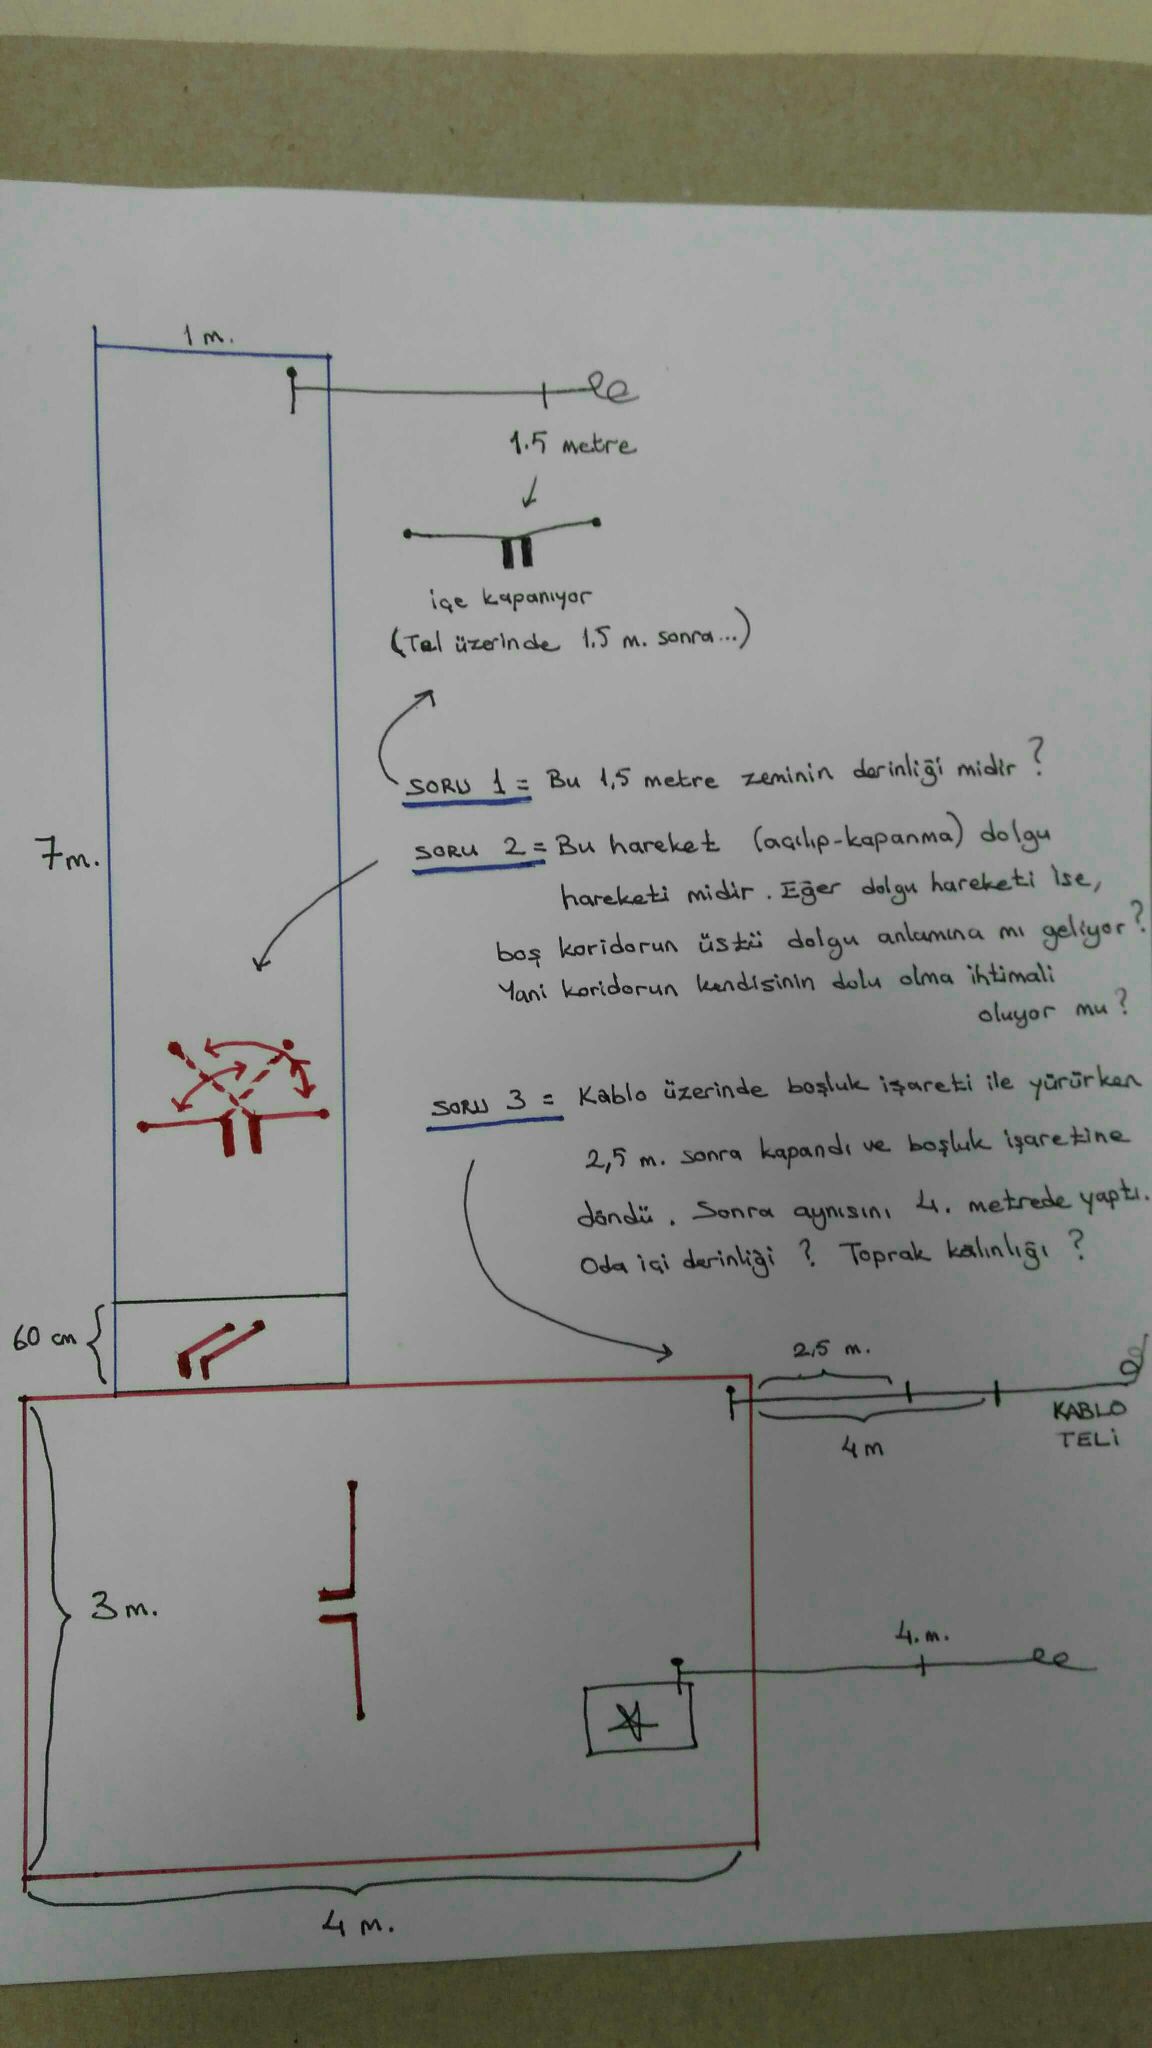 1 m.
1.5 metre
içe kapanıyor
(Tel üzerinde 1.5 m. sonra...)
SORU 1 = Bu 1,5 metre zeminin derinliği midir?
7 m.
SORU 2 = Bu hareket (açılıp-kapanma) dolgu
hareketi midir. Eğer dolgu hareketi ise,
boş koridorun üstü dolgu anlamına mı geliyor?
Yani koridorun kendisinin dolu olma ihtimali
oluyor mu?
SORU 3 = Kablo üzerinde boşluk işareti ile yürürken
2,5 m. sonra kapandı ve boşluk işaretine
döndü. Sonra aynısını 4. metrede yaptı.
Oda içi derinliği? Toprak kalınlığı?
60 cm
2,5 m.
4 m
KABLO
TELİ
3 m.
4. m.
4 m.